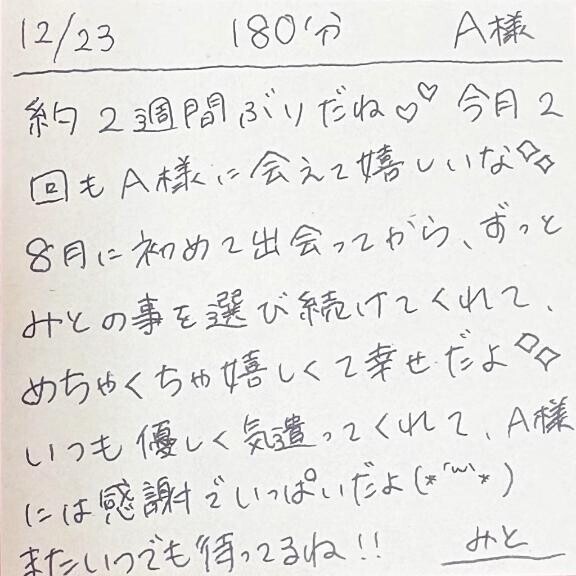 12/23 180分 A様
約2週間ぶりだね♡♡ 今月2
回もA様に会えて嬉しいな✧✧
8月に初めて出会ってから、ずっと
みとの事を選び続けてくれて、
めちゃくちゃ嬉しくて幸せだよ✧✧
いつも優しく気遣ってくれて、A様
には感謝でいっぱいだよ(*´ω`*)
またいつでも待ってるね!! みと